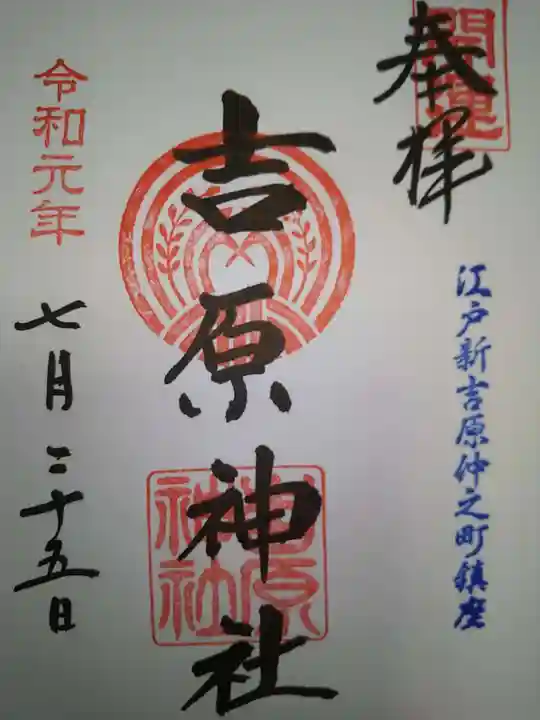 開運
奉拝
江戸新吉原仲之町鎮座
吉原神社
吉原
神社
令和元年
七月二十五日